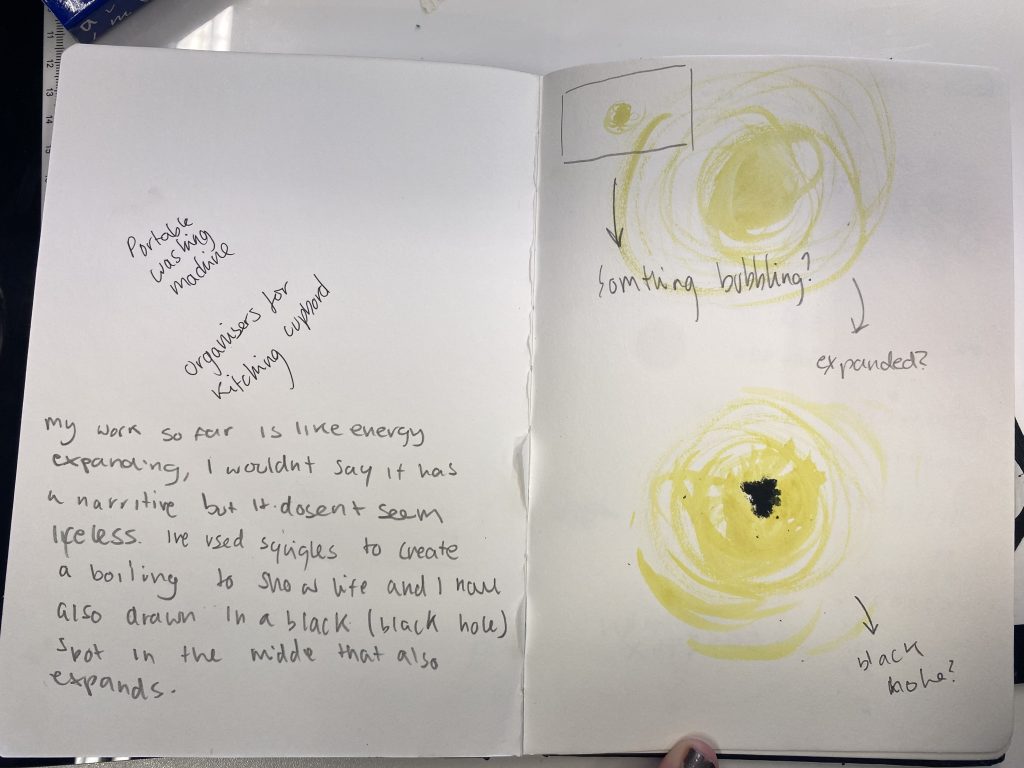 Portable
washing
machine
organisers for
Kitching cupbord
My work so far is like energy
expanding, I wouldnt say it has
a narritive but it dosent seem
lifeless. Ive used sqigles to create
a boiling to show life and I have
also drawn in a black (black hole)
spot in the midde that also
expands.
Somthing bubbling?
expanded?
black
hole?
11
12
13
14
15